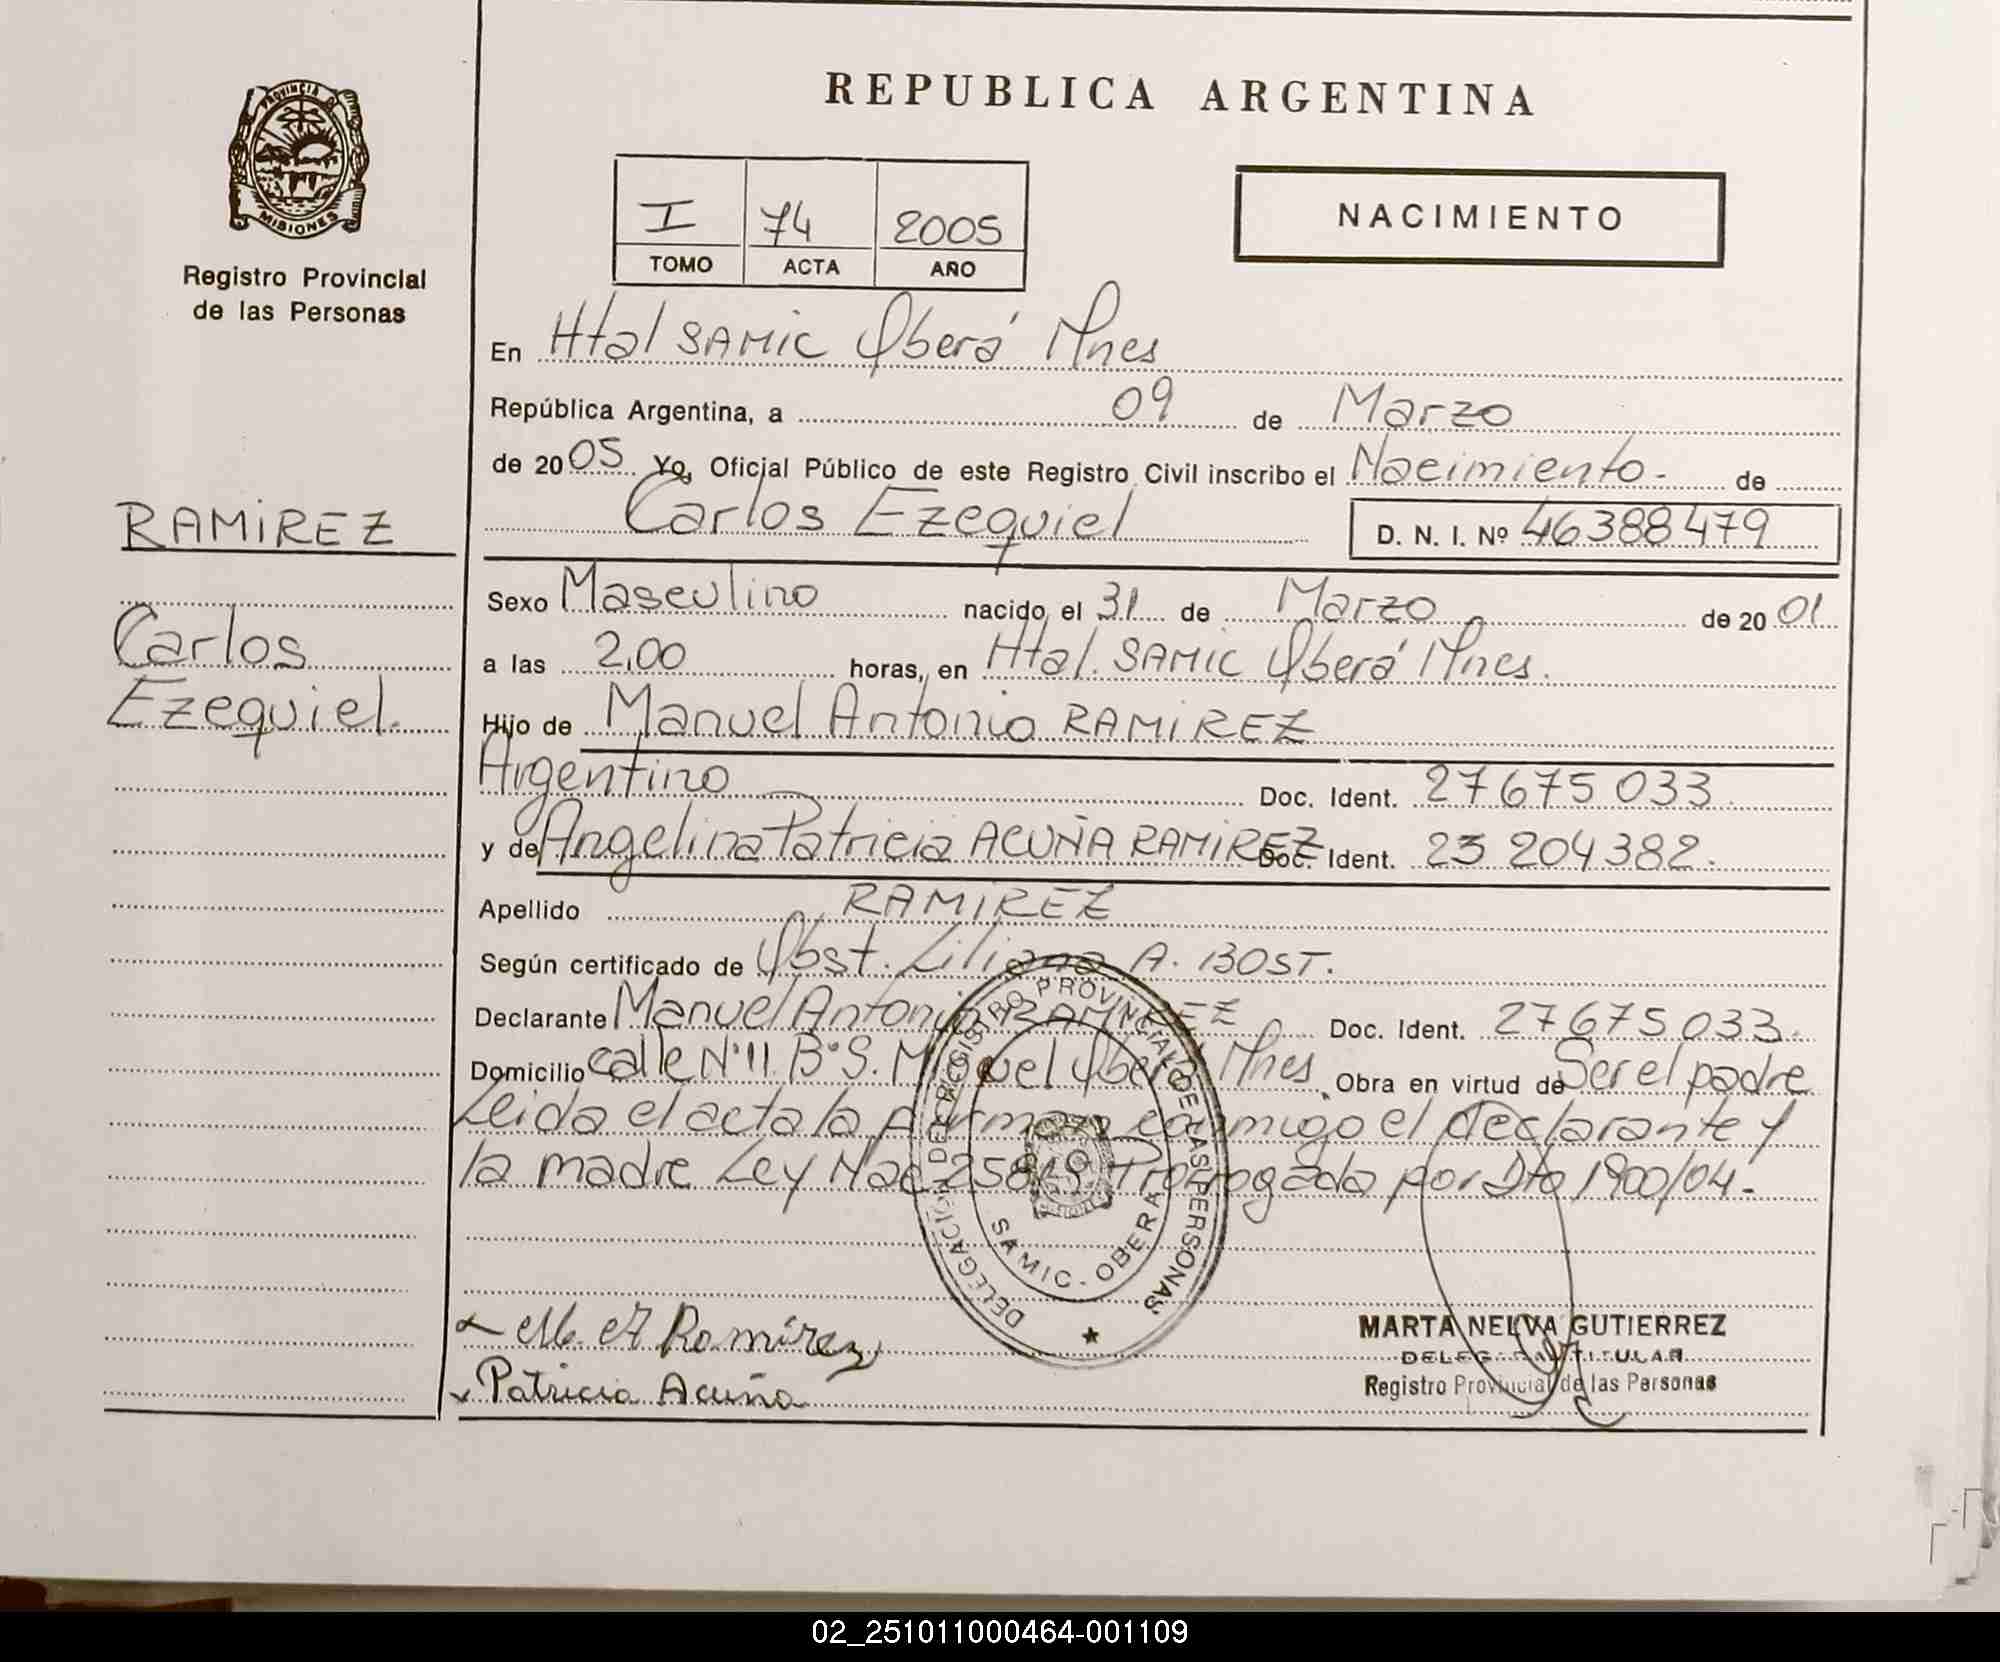 REPUBLICA ARGENTINA
PROVINCIA D
MISIONES
Registro Provincial
de las Personas
I 74 2005
TOMO ACTA AÑO
NACIMIENTO
En Htal SAMIC Oberá Mnes
República Argentina, a 09 de Marzo
de 2005 Yo, Oficial Público de este Registro Civil inscribo el Nacimiento. de
Carlos Ezequiel D. N. I. Nº 46388479
RAMIREZ
Carlos
Ezequiel.
Sexo Masculino nacido el 31 de Marzo de 2001
a las 2,00 horas, en Htal. SAMIC Oberá Mnes.
Hijo de Manuel Antonio RAMIREZ
Argentino Doc. Ident. 27675033
y de Angelina Patricia ACUÑA RAMIREZ Doc. Ident. 23 204382.
Apellido RAMIREZ
Según certificado de Obst. Liliana A. BOST.
Declarante Manuel Antonio RAMIREZ Doc. Ident. 27675033.
Domicilio calle Nº11 Bº S. Miguel Oberá Mnes. Obra en virtud de Ser el padre
Leida el acta la firman conmigo el declarante y
la madre Ley Nac 25819 Prorrogada por Dto 1900/04.
DELEGACION DEL REGISTRO PROVINCIAL DE LAS PERSONAS
SAMIC - OBERA
Ramírez
Patricia Acuña
MARTA NELVA GUTIERREZ
DELEGADA TITULAR
Registro Provincial de las Personas
02_251011000464-001109